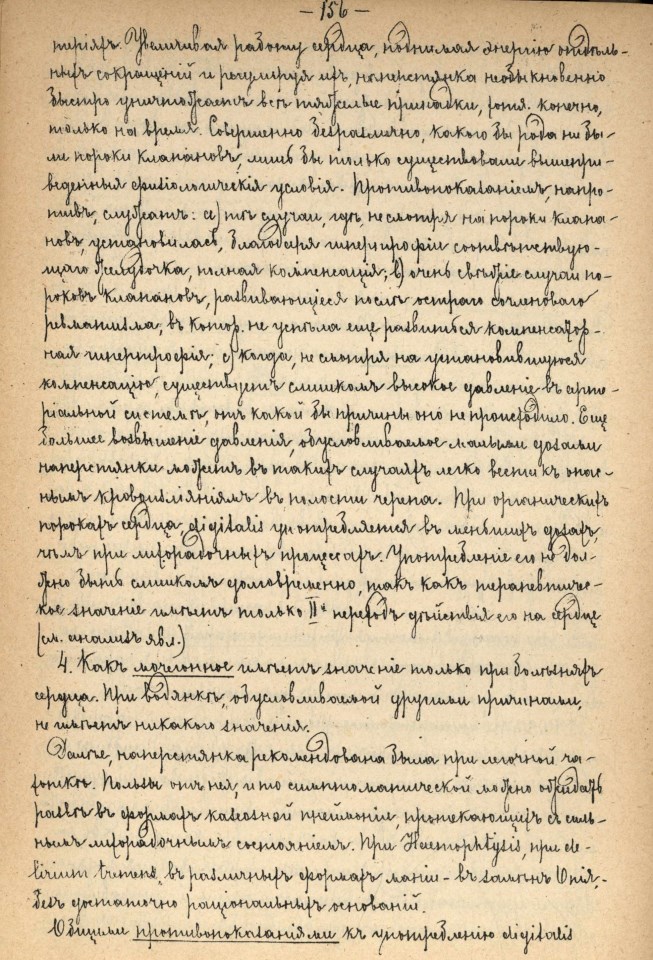 — 156 —
теріяхъ. Увеличивая работу сердца, поднимая энергію отдѣль-
ныхъ сокращеній и регулируя ихъ, наперстянка необыкновенно
быстро уничтожаетъ всѣ тяжелые припадки, хотя, конечно,
только на время. Совершенно безразлично, какого бы рода ни бы-
ли пороки клапановъ, лишь бы только существовали вышепри-
веденныя физіологическія условія. Противопоказаніемъ, напро-
тивъ, служатъ: a) тѣ случаи, гдѣ, не смотря на пороки клапа-
новъ, установилась, благодаря гипертрофіи соотвѣтствую-
щаго желудочка, полная компенсація; b) очень свѣжіе случаи по-
роковъ клапановъ, развивающіеся послѣ остраго сочленоваго
ревматизма, въ котор. не успѣла еще развиться компенсатор-
ная гипертрофія; c) когда, не смотря на установившуюся
компенсацію, существуетъ слишкомъ высокое давленіе въ арте-
ріальной системѣ, отъ какой бы причины оно не происходило. Еще
большее возвышеніе давленія, обусловливаемое малыми дозами
наперстянки можетъ въ такихъ случаяхъ легко вести къ опас-
нымъ кровоизліяніямъ въ полости черепа. При органическихъ
порокахъ сердца, digitalis употребляется въ меньшихъ дозахъ,
чѣмъ при лихорадочныхъ процессахъ. Употребленіе его не дол-
жно быть слишкомъ долговременно, такъ какъ терапевтичес-
кое значеніе имѣетъ только IIй періодъ дѣйствія его на сердце
(см. анализъ явл.)
4. Какъ мочегонное имѣетъ значеніе только при болѣзняхъ
сердца. При водянкѣ, обусловливаемой другими причинами,
не имѣетъ никакого значенія.
Далѣе, наперстянка рекомендована была при легочной ча-
хоткѣ. Пользы отъ нея, и то симптоматической можно ожидать
развѣ въ формахъ казеозной пнеймоніи, протекающихъ съ силь-
нымъ лихорадочнымъ состояніемъ. При Haemophtysis, при de-
lirium tremens, въ различныхъ формахъ маніи - въ замѣнъ Опія, -
безъ достаточно раціональныхъ основаній.
Общими противопоказаніями къ употребленію digitalis